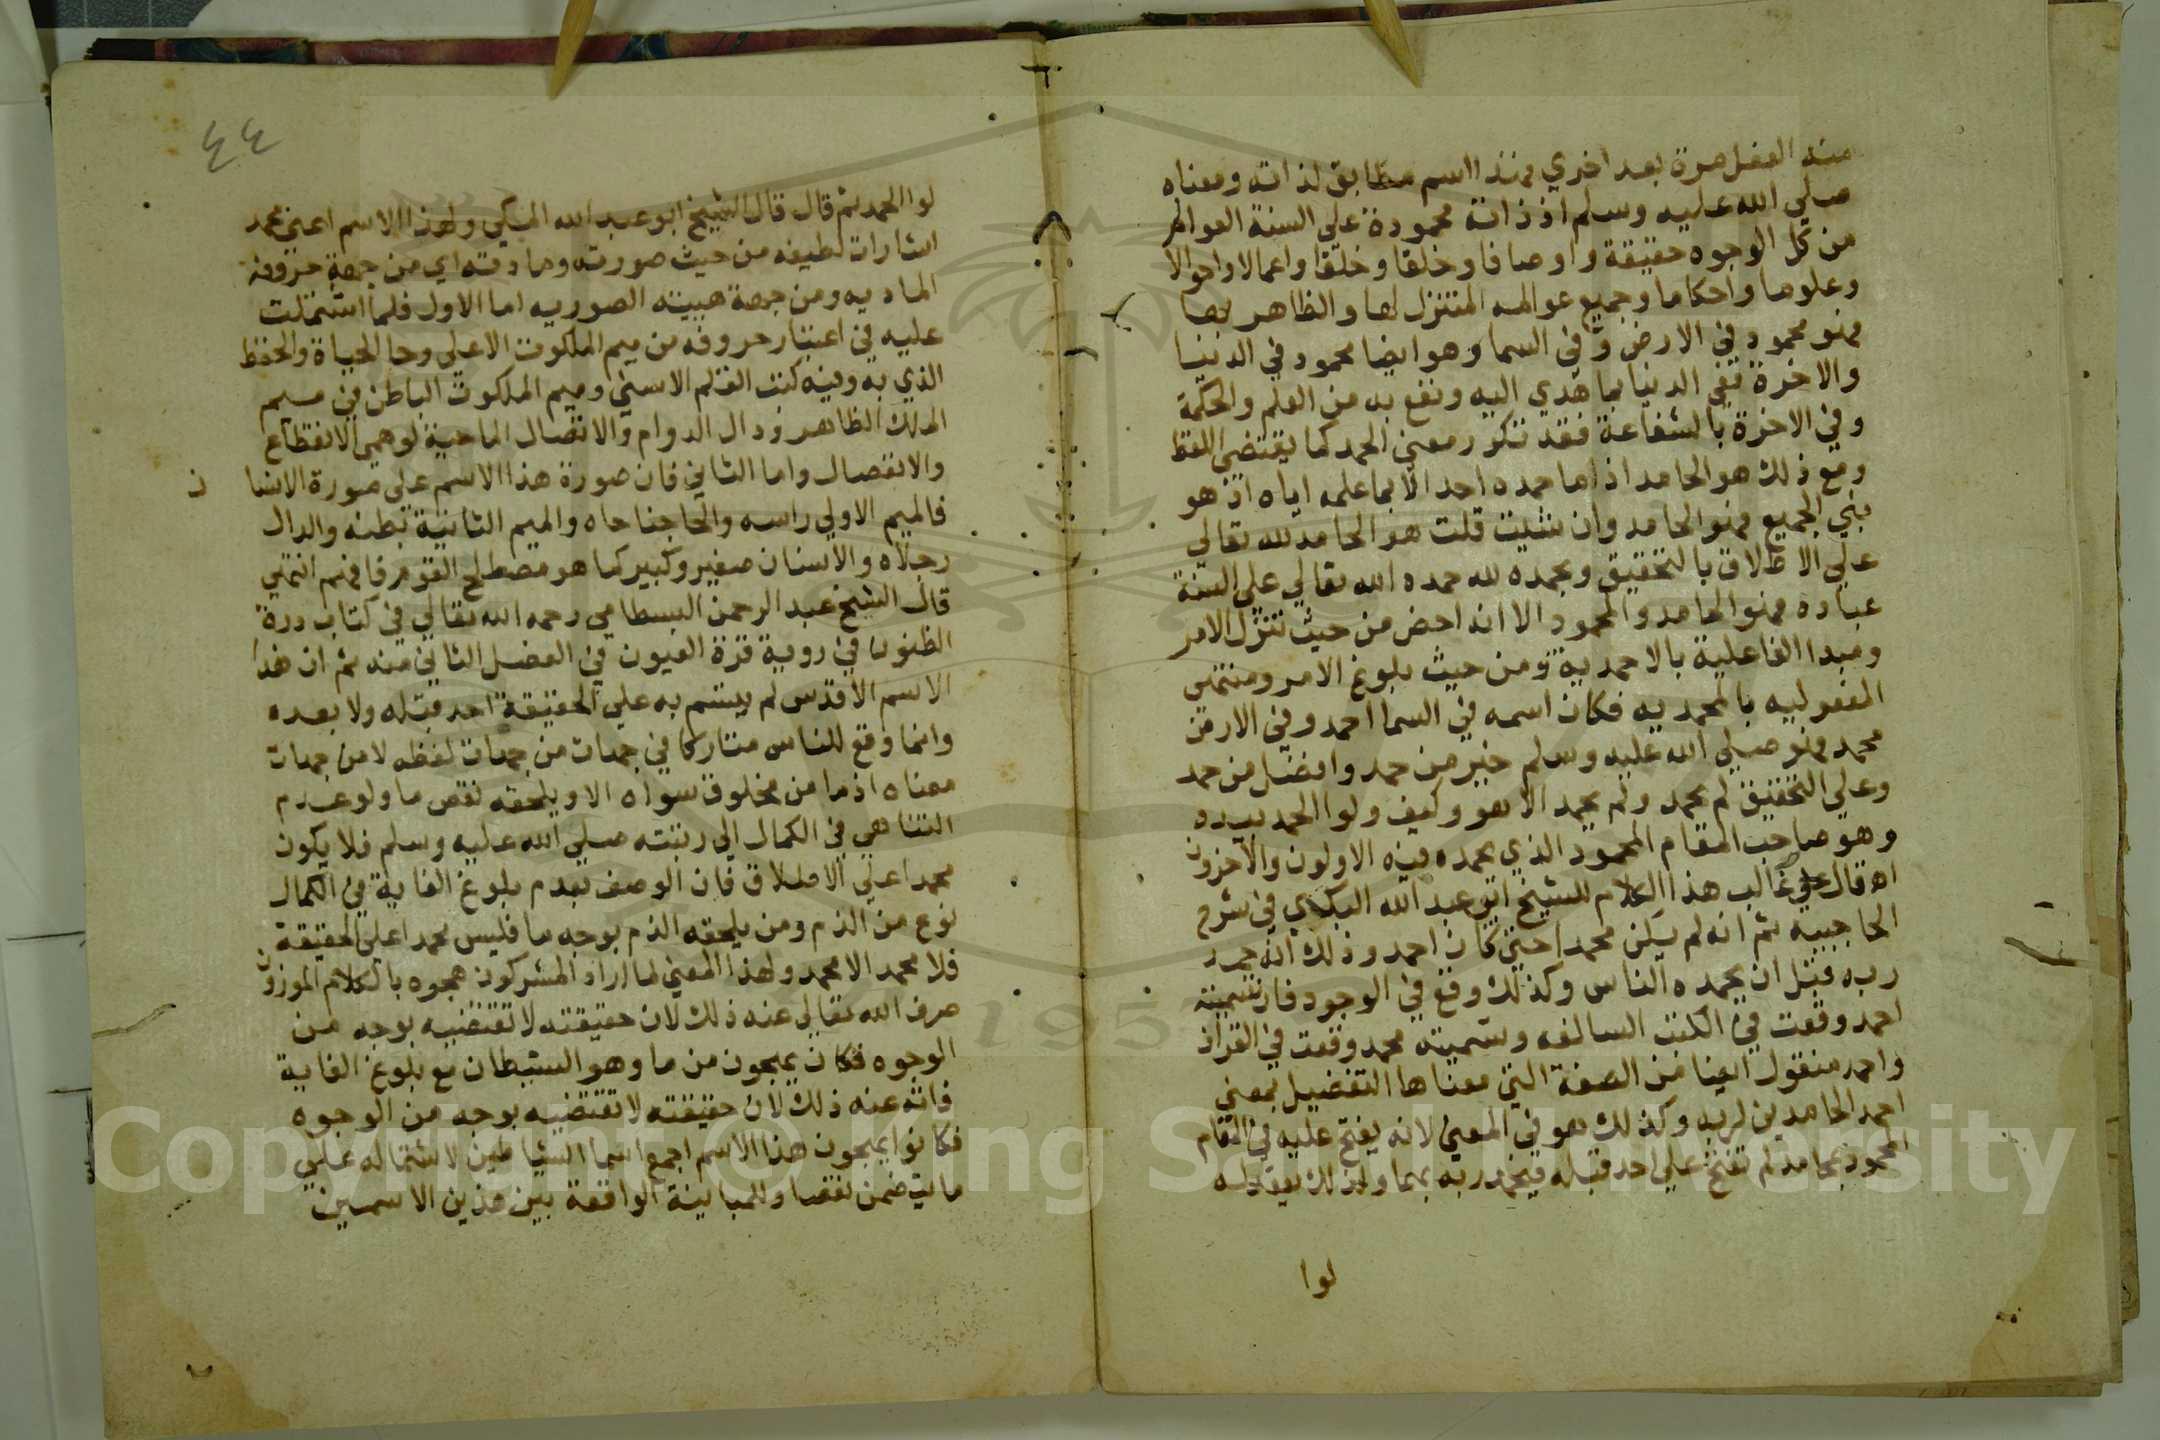 منه الفعل مرة بعد اخري فهذا اسم مطابق لذاته ومعناه
صلي الله عليه وسلم اذ ذاته محمودة علي السنة العوالم
من كل الوجوه حقيقة واوصافا وخلقا وخلقا واعمالا واحوالا
وعلوما واحكاما وجميع عوالمه المتنزل لها والظاهر بها
فهو محمود في الارض وفي السما وهو ايضا محمود في الدنيا
والاخرة ففي الدنيا بما هدي اليه ونفع به من العلم والحكمة
وفي الاخرة بالشفاعة فقد تكرر معني الحمد كما يقتضي اللفظ
ومع ذلك هو الحامد اذ ما حمده احد الا بما علمه اياه اذ هو
نبي الجميع فهو الحامد وان شيت قلت هو الحامد لله تعالي
علي الاطلاق بالتحقيق وبحمده لله حمده الله تعالي علي السنة
عباده فهو الحامد والمحمود الا انه احض من حيث تنزل الامر
ومبدا الفاعلية بالاحمدية ومن حيث بلوغ الامر ومنتهي
المفعوليه بالمحمديه فكان اسمه في السما احمد وفي الارض
محمد فهو صلي الله عليه وسلم خير من حمد وافضل من حمد
وعلي التحقيق لم يحمد ولم يحمد الا هو وكيف ولوا الحمد بيده
وهو صاحب المقام المحمود الذي يحمده فيه الاولون والآخرون
اه قال غالب هذا الكلام للشيخ ابو عبد الله البكي في شرح
الحاجبيه ثم انه لم يكن محمدا حتي كان احمد وذلك انه حمد
ربه قبل ان يحمده الناس وكذلك وقع في الوجود فان تسميته
احمد وقعت في الكتب السالفه وتسميته محمد وقعت في القران
واحمد منقول ايضا من الصفة التي معناها التفضيل بمعني
احمد الحامدين لربه وكذلك هو في المعني لانه يفتح عليه في المقام
المحمود بمحامد لم تفتح علي احد قبله فيحمد ربه بها ولذلك يعقد له
لوا
٤٤
لوا الحمد ثم قال قال الشيخ ابو عبد الله البكي ولهذا الاسم اعني محمد
اشارات لطيفه من حيث صورته ومادته اي من جهة حروفه
الماديه ومن جهة هييته الصوريه اما الاول فلما اشتملت
عليه في اعتبار حروفه من ميم الملكوت الاعلي وحا الحياة والحفظ
الذي به وفيه كتب القلم الاسني وميم الملكوت الباطن في ميم
الملك الظاهر ودال الدوام والاتصال الماحية لوهمي الانقطاع
والانفصال واما الثاني فان صورة هذا الاسم علي صورة الانسان
فالميم الاولي راسه والحا جناحاه والميم الثانية بطنه والدال
رجلاه والانسان صغير وكبير كما هو مصطلح القوم فافهم انتهي
قال الشيخ عبد الرحمن البسطامي رحمه الله تعالي في كتاب درة
الظنون في روية قرة العيون في الفصل الثاني منه ثم ان هذا
الاسم الاقدس لم يتسم به علي الحقيقة احد قبله ولا بعده
وانما وقع للناس متاركا في جهات من جهات لفظه لا من جهات
معناه اذ ما من مخلوق سواه الا ويلحقه نقص ما ولو عدم
التناهي في الكمال الي رتبته صلي الله عليه وسلم فلا يكون
محمدا علي الاطلاق فان الوصف بعدم بلوغ الغاية في الكمال
نوع من الذم ومن يلحقه الذم بوجه ما فليس محمدا علي الحقيقة
فلا محمد الا محمد ولهذا المعني لما اراد المشركون هجوه بالكلام الموزون
صرف الله تعالي عنه ذلك لان حقيقته لا تقتضيه بوجه من
الوجوه فكان يهجون من ما وهو الشيطان مع بلوغ الغاية
فاته عنه ذلك لان حقيقته لا تقتضيه بوجه من الوجوه
فكانوا يهجون هذا الاسم اجمع اسما الشياطين لاشتماله علي
ما يتضمن نقصا وللمباينة الواقعة بين هذين الاسمين